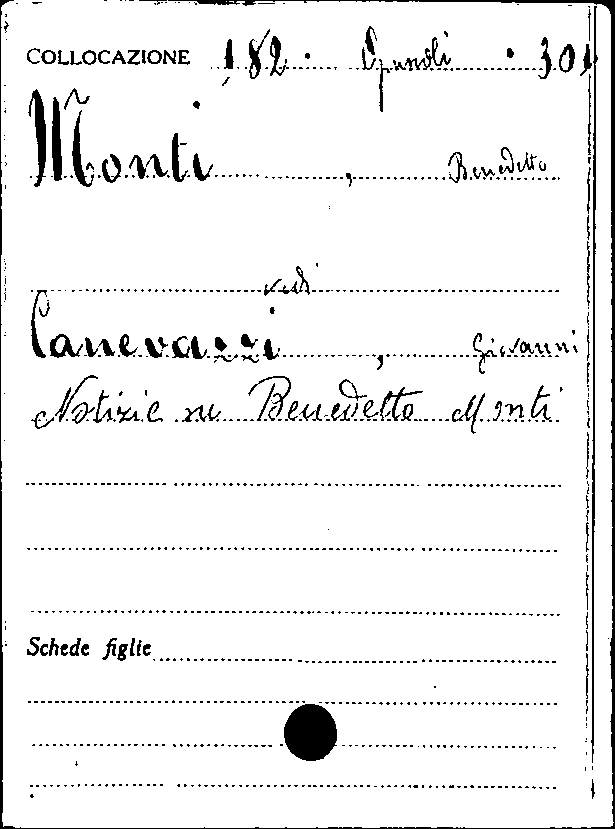 COLLOCAZIONE 182 · Opuscoli · 301
Monti, Benedetto
vedi
Canevazzi, Giovanni
Notizie su Benedetto Monti
Schede figlie